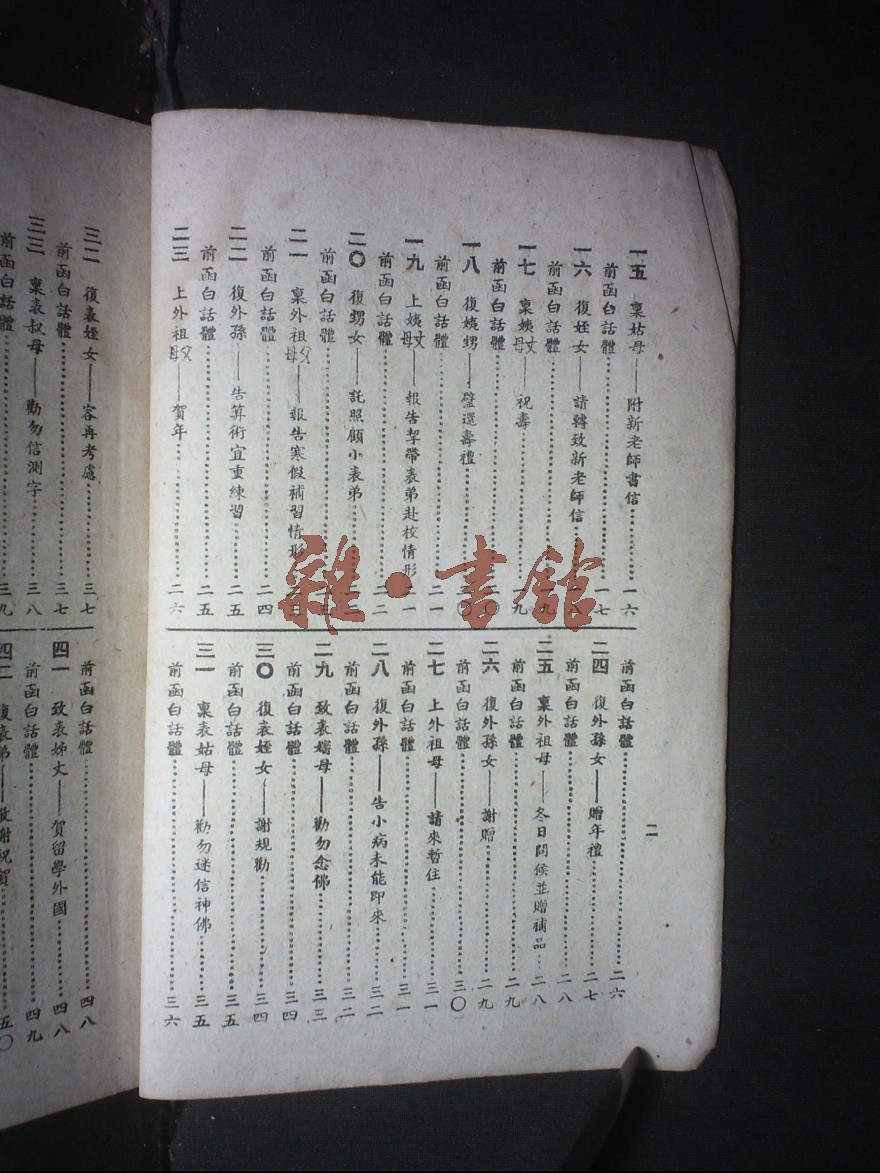 二
一五 稟姑母——附新老師書信……一六
前函白話體……一七
一六 復姪女——請轉致新老師信……
前函白話體……
一七 稟姨丈母——祝壽……一九
前函白話體……
一八 復姨甥——璧還壽禮……
前函白話體……二一
一九 上姨丈母——報告挈帶表弟赴校情形
前函白話體……二二
二〇 復甥女——託照顧小表弟……
前函白話體……
二一 稟外祖父母——報告寒假補習情形
前函白話體……二四
二二 復外孫——告算術宜重練習……二五
前函白話體……二五
二三 上外祖父母——賀年……二六
前函白話體……二六
二四 復外孫女——贈年禮……二七
前函白話體……二八
二五 稟外祖母——冬日問候並贈補品…二八
前函白話體……二九
二六 復外孫女——謝贈……二九
前函白話體……三〇
二七 上外祖母——請來暫住……三一
前函白話體……三一
二八 復外孫——告小病未能即來……三二
前函白話體……三二
二九 致表嬸母——勸勿念佛……三三
前函白話體……三四
三〇 復表姪女——謝規勸……三四
前函白話體……三五
三一 稟表姑母——勸勿迷信神佛……三五
前函白話體……三六
三二 復表姪女——容再考慮……三七
前函白話體……三七
三三 稟表叔母——勸勿信測字……三八
前函白話體……三九
前函白話體……四八
四一 致表姊丈——賀留學外國……四八
前函白話體……四九
四二 復表弟——敬謝祝賀……五〇
雜·書館